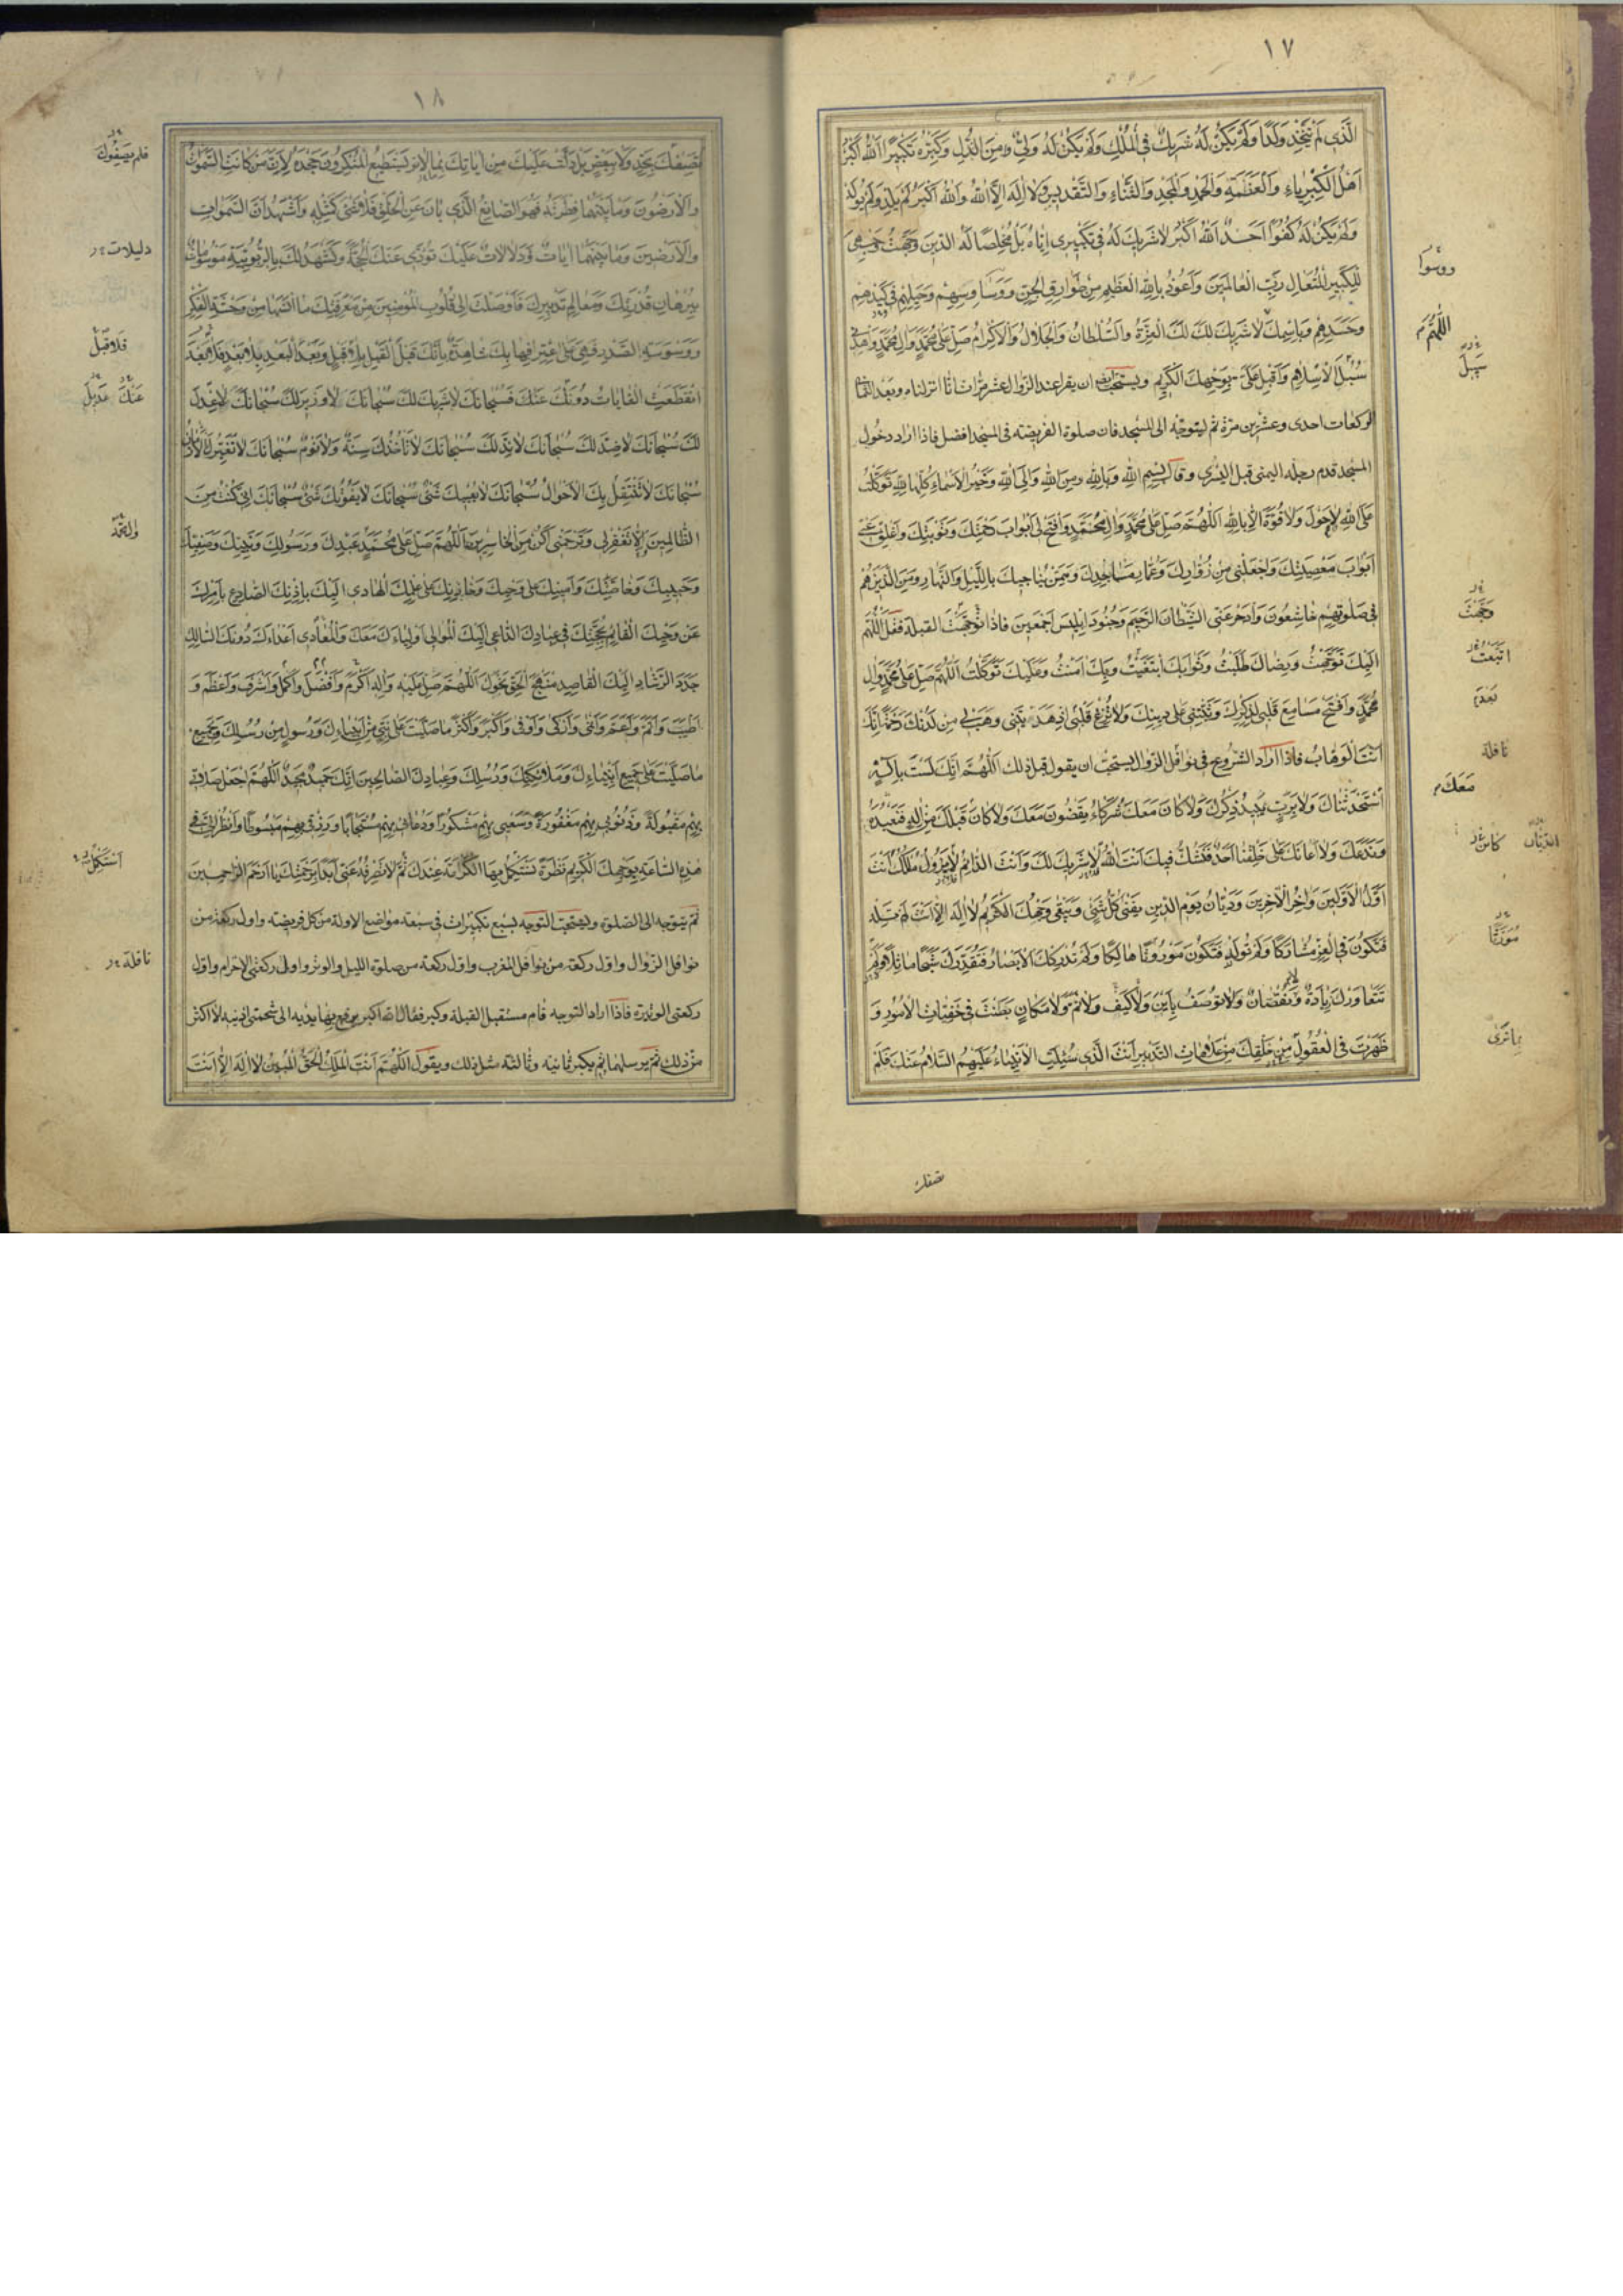 ١٧
الَّذى لَمْ يَتَّخِذْ وَلَدًا وَلَمْ يَكُنْ لَهُ شَريكٌ فِى الْمُلْكِ وَلَمْ يَكُنْ لَهُ وَلِىٌّ مِنَ الذُّلِّ وَكَبِّرْهُ تَكْبيرًا اَللّٰهُ اَكْبَرُ
اَهْلُ الْكِبْرِياءِ وَالْعَظَمَةِ وَالْحَمْدِ وَالْمَجْدِ وَالثَّناءِ وَالتَّقْديسِ وَلا اِلٰهَ اِلَّا اللّٰهُ وَاللّٰهُ اَكْبَرُ لَمْ يَلِدْ وَلَمْ يُولَدْ
وَلَمْ يَكُنْ لَهُ كُفُوًا اَحَدٌ اَللّٰهُ اَكْبَرُ لا شَريكَ لَهُ فى تَكْبيرى اِيّاهُ بَلْ مُخْلِصًا لَهُ الدّينَ وَجَّهْتُ وَجْهِىَ
لِلْكَبيرِ الْمُتَعالِ رَبِّ الْعالَمينَ وَاَعُوذُ بِاللّٰهِ الْعَظيمِ مِنْ طَوارِقِ الْجِنِّ وَوَساوِسِهِمْ وَحِيَلِهِمْ فى كَيْدِهِمْ
وَحَسَدِهِمْ وَبِاسْمِكَ لا شَريكَ لَكَ لَكَ الْعِزَّةُ وَالسُّلْطانُ وَالْجَلالُ وَالْاِكْرامُ صَلِّ عَلىٰ مُحَمَّدٍ وَالِ مُحَمَّدٍ وَاهْدِنى
سُبُلَ الْاِسْلامِ وَاَقْبِلْ عَلَىَّ بِوَجْهِكَ الْكَريمِ ويستحب ان يقرا عند الزوال عشر مرات انا انزلناه وبعد الثمان
الركعات احدى وعشرين مرة ثم ليتوجه الى المسجد فان صلوة الفريضة فى المسجد افضل فاذا اراد دخول
المسجد قدم رجله اليمنى قبل اليسرى وقال بِسْمِ اللّٰهِ وَبِاللّٰهِ وَمِنَ اللّٰهِ وَاِلَى اللّٰهِ وَخَيْرُ الْاَسْماءِ كُلِّها لِلّٰهِ تَوَكَّلْتُ
عَلَى اللّٰهِ لا حَوْلَ وَلا قُوَّةَ اِلّا بِاللّٰهِ اَللّٰهُمَّ صَلِّ عَلىٰ مُحَمَّدٍ وَالِ مُحَمَّدٍ وَافْتَحْ لى اَبْوابَ رَحْمَتِكَ وَتَوْبَتِكَ وَاَغْلِقْ عَنّى
اَبْوابَ مَعْصِيَتِكَ وَاجْعَلْنى مِنْ زُوّارِكَ وَعُمّارِ مَساجِدِكَ وَمِمَّنْ يُناجيكَ بِاللَّيْلِ وَالنَّهارِ وَمِنَ الَّذينَ هُمْ
فى صَلوتِهِمْ خاشِعُونَ وَادْحَرْ عَنِّى الشَّيْطانَ الرَّجيمَ وَجُنُودَ اِبْليسَ اَجْمَعينَ فاذا توجهت القبلة فقل اَللّٰهُمَّ
اِلَيْكَ تَوَجَّهْتُ وَرِضاكَ طَلَبْتُ وَثَوابَكَ ابْتَغَيْتُ وَبِكَ امَنْتُ وَعَلَيْكَ تَوَكَّلْتُ اَللّٰهُمَّ صَلِّ عَلىٰ مُحَمَّدٍ وَالِ
مُحَمَّدٍ وَافْتَحْ مَسامِعَ قَلْبى لِذِكْرِكَ وَثَبِّتْنى عَلىٰ دينِكَ وَلا تُزِغْ قَلْبى اِذْ هَدَيْتَنى وَهَبْ لى مِنْ لَدُنْكَ رَحْمَةً اِنَّكَ
اَنْتَ الْوَهّابُ فاذا اراد الشروع فى نوافل الزوال يستحب ان يقول قبل ذلك اَللّٰهُمَّ اِنَّكَ لَسْتَ بِاِلٰهٍ
اسْتَحْدَثْناكَ وَلا بِرَبٍّ يَبيدُ ذِكْرُكَ وَلا كانَ مَعَكَ شُرَكاءُ يَقْضُونَ مَعَكَ وَلا كانَ قَبْلَكَ مِنْ اِلٰهٍ فَنَعْبُدَهُ
وَنَدَعَكَ وَلا اَعانَكَ عَلىٰ خَلْقِنا اَحَدٌ فَنَشُكَّ فيكَ اَنْتَ اللّٰهُ لا شَريكَ لَكَ وَاَنْتَ الدّائِمُ لا يَزُولُ مُلْكُكَ اَنْتَ
اَوَّلُ الْاَوَّلينَ وَاخِرُ الْاخِرينَ وَدَيّانُ يَوْمِ الدّينِ يَفْنىٰ كُلُّ شَىْءٍ وَيَبْقىٰ وَجْهُكَ الْكَريمُ لا اِلٰهَ اِلّا اَنْتَ لَمْ تَلِدْ
فَتَكُونَ فِى الْعِزِّ مُشارَكًا وَلَمْ تُولَدْ فَتَكُونَ مَوْرُوثًا هالِكًا وَلَمْ تُدْرِكْكَ الْاَبْصارُ فَتُقَدِّرَكَ شَبَحًا ماثِلًا وَلَمْ
تَتَعاوَرْكَ زِيادَةٌ وَلا نُقْصانٌ وَلا تُوصَفُ بِاَيْنَ وَلا كَيْفَ وَلا ثَمَّ وَلا مَكانٍ بَطَنْتَ فى خَفِيّاتِ الْاُمُورِ وَ
ظَهَرْتَ فِى الْعُقُولِ مِنْ خَلْقِكَ مِنْ عَلاماتِ التَّدْبيرِ اَنْتَ الَّذى سُئِلَتِ الْاَنْبِياءُ عَلَيْهِمُ السَّلامُ عَنْكَ فَلَمْ
اللّٰهُمَّ
سبل
وجهت
نافلة
معك
الديان
كائن
مورثا
تصفك
١٨
تَصِفْكَ بِحَدٍّ وَلا بِبَعْضٍ بَلْ دَلَّتْ عَلَيْكَ مِنْ اياتِكَ بِما لا يَسْتَطيعُ الْمُنْكِرُونَ جَحْدَهُ لِاَنَّ مَنْ كانَتِ السَّمٰواتُ
وَالْاَرَضُونَ وَما بَيْنَهُما فِطْرَتَهُ فَهُوَ الصّانِعُ الَّذى بانَ عَنِ الْخَلْقِ فَلا شَىْءَ كَمِثْلِهِ وَاَشْهَدُ اَنَّ السَّمٰواتِ
وَالْاَرَضينَ وَما بَيْنَهُما اياتٌ وَدَلالاتٌ عَلَيْكَ تُؤَدّى عَنْكَ الْحُجَّةَ وَتَشْهَدُ لَكَ بِالرُّبُوبِيَّةِ مَوْسُوماتٌ
بِبُرْهانِ قُدْرَتِكَ وَمَعالِمِ تَدْبيرِكَ فَاَوْصَلْتَ اِلىٰ قُلُوبِ الْمُؤْمِنينَ مِنْ مَعْرِفَتِكَ ما انَسَها مِنْ وَحْشَةِ الْفِكْرِ
وَوَسْوَسَةِ الصَّدْرِ فَهِىَ عَلَى اعْتِرافِها بِكَ شاهِدَةٌ بِاَنَّكَ قَبْلَ الْقَبْلِ بِلا قَبْلٍ وَبَعْدَ الْبَعْدِ بِلا بَعْدٍ
انْقَطَعَتِ الْغاياتُ دُونَكَ فَسُبْحانَكَ لا شَريكَ لَكَ سُبْحانَكَ لا وَزيرَ لَكَ سُبْحانَكَ لا عِدْلَ
لَكَ سُبْحانَكَ لا ضِدَّ لَكَ سُبْحانَكَ لا نِدَّ لَكَ سُبْحانَكَ لا تَأْخُذُكَ سِنَةٌ وَلا نَوْمٌ سُبْحانَكَ لا تُغَيِّرُكَ الْاَزْمانُ
سُبْحانَكَ لا تَنْتَقِلُ بِكَ الْاَحْوالُ سُبْحانَكَ لا يُعْييكَ شَىْءٌ سُبْحانَكَ لا يَفُوتُكَ شَىْءٌ سُبْحانَكَ اِنّى كُنْتُ مِنَ
الظّالِمينَ اِلّا تَغْفِرْ لى وَتَرْحَمْنى اَكُنْ مِنَ الْخاسِرينَ اَللّٰهُمَّ صَلِّ عَلىٰ مُحَمَّدٍ عَبْدِكَ وَرَسُولِكَ وَنَبِيِّكَ وَصَفِيِّكَ
وَحَبيبِكَ وَخاصَّتِكَ وَاَمينِكَ عَلىٰ وَحْيِكَ وَخازِنِكَ عَلىٰ عِلْمِكَ الْهادى اِلَيْكَ بِاِذْنِكَ الصّادِعِ بِاَمْرِكَ
عَنْ وَحْيِكَ الْقائِمِ بِحُجَّتِكَ فى عِبادِكَ الدّاعى اِلَيْكَ الْمُوالى اَوْلِياءَكَ مَعَكَ وَالْمُعادى اَعْداءَكَ دُونَكَ السّالِكِ
جَدَدَ الرَّشادِ اِلَيْكَ الْقاصِدِ مَنْهَجَ الْحَقِّ نَحْوَكَ اَللّٰهُمَّ صَلِّ عَلَيْهِ وَالِهِ اَكْرَمَ وَاَفْضَلَ وَاَكْمَلَ وَاَشْرَفَ وَاَعْظَمَ وَ
اَطْيَبَ وَاَتَمَّ وَاَعَمَّ وَاَنْمىٰ وَاَزْكىٰ وَاَوْفىٰ وَاَكْبَرَ وَاَكْثَرَ ما صَلَّيْتَ عَلىٰ نَبِىٍّ مِنْ اَنْبِيائِكَ وَرَسُولٍ مِنْ رُسُلِكَ وَبِجَميعِ
ما صَلَّيْتَ عَلىٰ جَميعِ اَنْبِيائِكَ وَمَلائِكَتِكَ وَرُسُلِكَ وَعِبادِكَ الصّالِحينَ اِنَّكَ حَميدٌ مَجيدٌ اَللّٰهُمَّ اجْعَلْ صَلاتى
بِهِمْ مَقْبُولَةً وَذُنُوبى بِهِمْ مَغْفُورَةً وَسَعْيى بِهِمْ مَشْكُورًا وَدُعائى بِهِمْ مُسْتَجابًا وَرِزْقى بِهِمْ مَبْسُوطًا وَانْظُرْ اِلَىَّ فى
هٰذِهِ السّاعَةِ بِوَجْهِكَ الْكَريمِ نَظْرَةً اَسْتَكْمِلُ بِهَا الْكَرامَةَ عِنْدَكَ ثُمَّ لا تَصْرِفْهُ عَنّى اَبَدًا بِرَحْمَتِكَ يا اَرْحَمَ الرّاحِمينَ
ثم يتوجه الى الصلوة ويستحب التوجه بسبع تكبيرات فى سبعة مواضع الاولة من كل فريضة واول ركعة من
نوافل الزوال واول ركعة من نوافل المغرب واول ركعة من صلوة الليل والوتر واولى ركعتى الاحرام واول
ركعتى الوتيرة فاذا اراد التوجه قام مستقبل القبلة وكبر فقال الله اكبر يرفع بها يديه الى شحمتى اذنيه لا اكثر
من ذلك ثم يرسلهما ثم يكبر ثانية وثالثة مثل ذلك ويقول اَللّٰهُمَّ اَنْتَ الْمَلِكُ الْحَقُّ الْمُبينُ لا اِلٰهَ اِلّا اَنْتَ
فلم يصفوك
دليلات
فلا قبل
عنك عديل
استكمل
نافلة